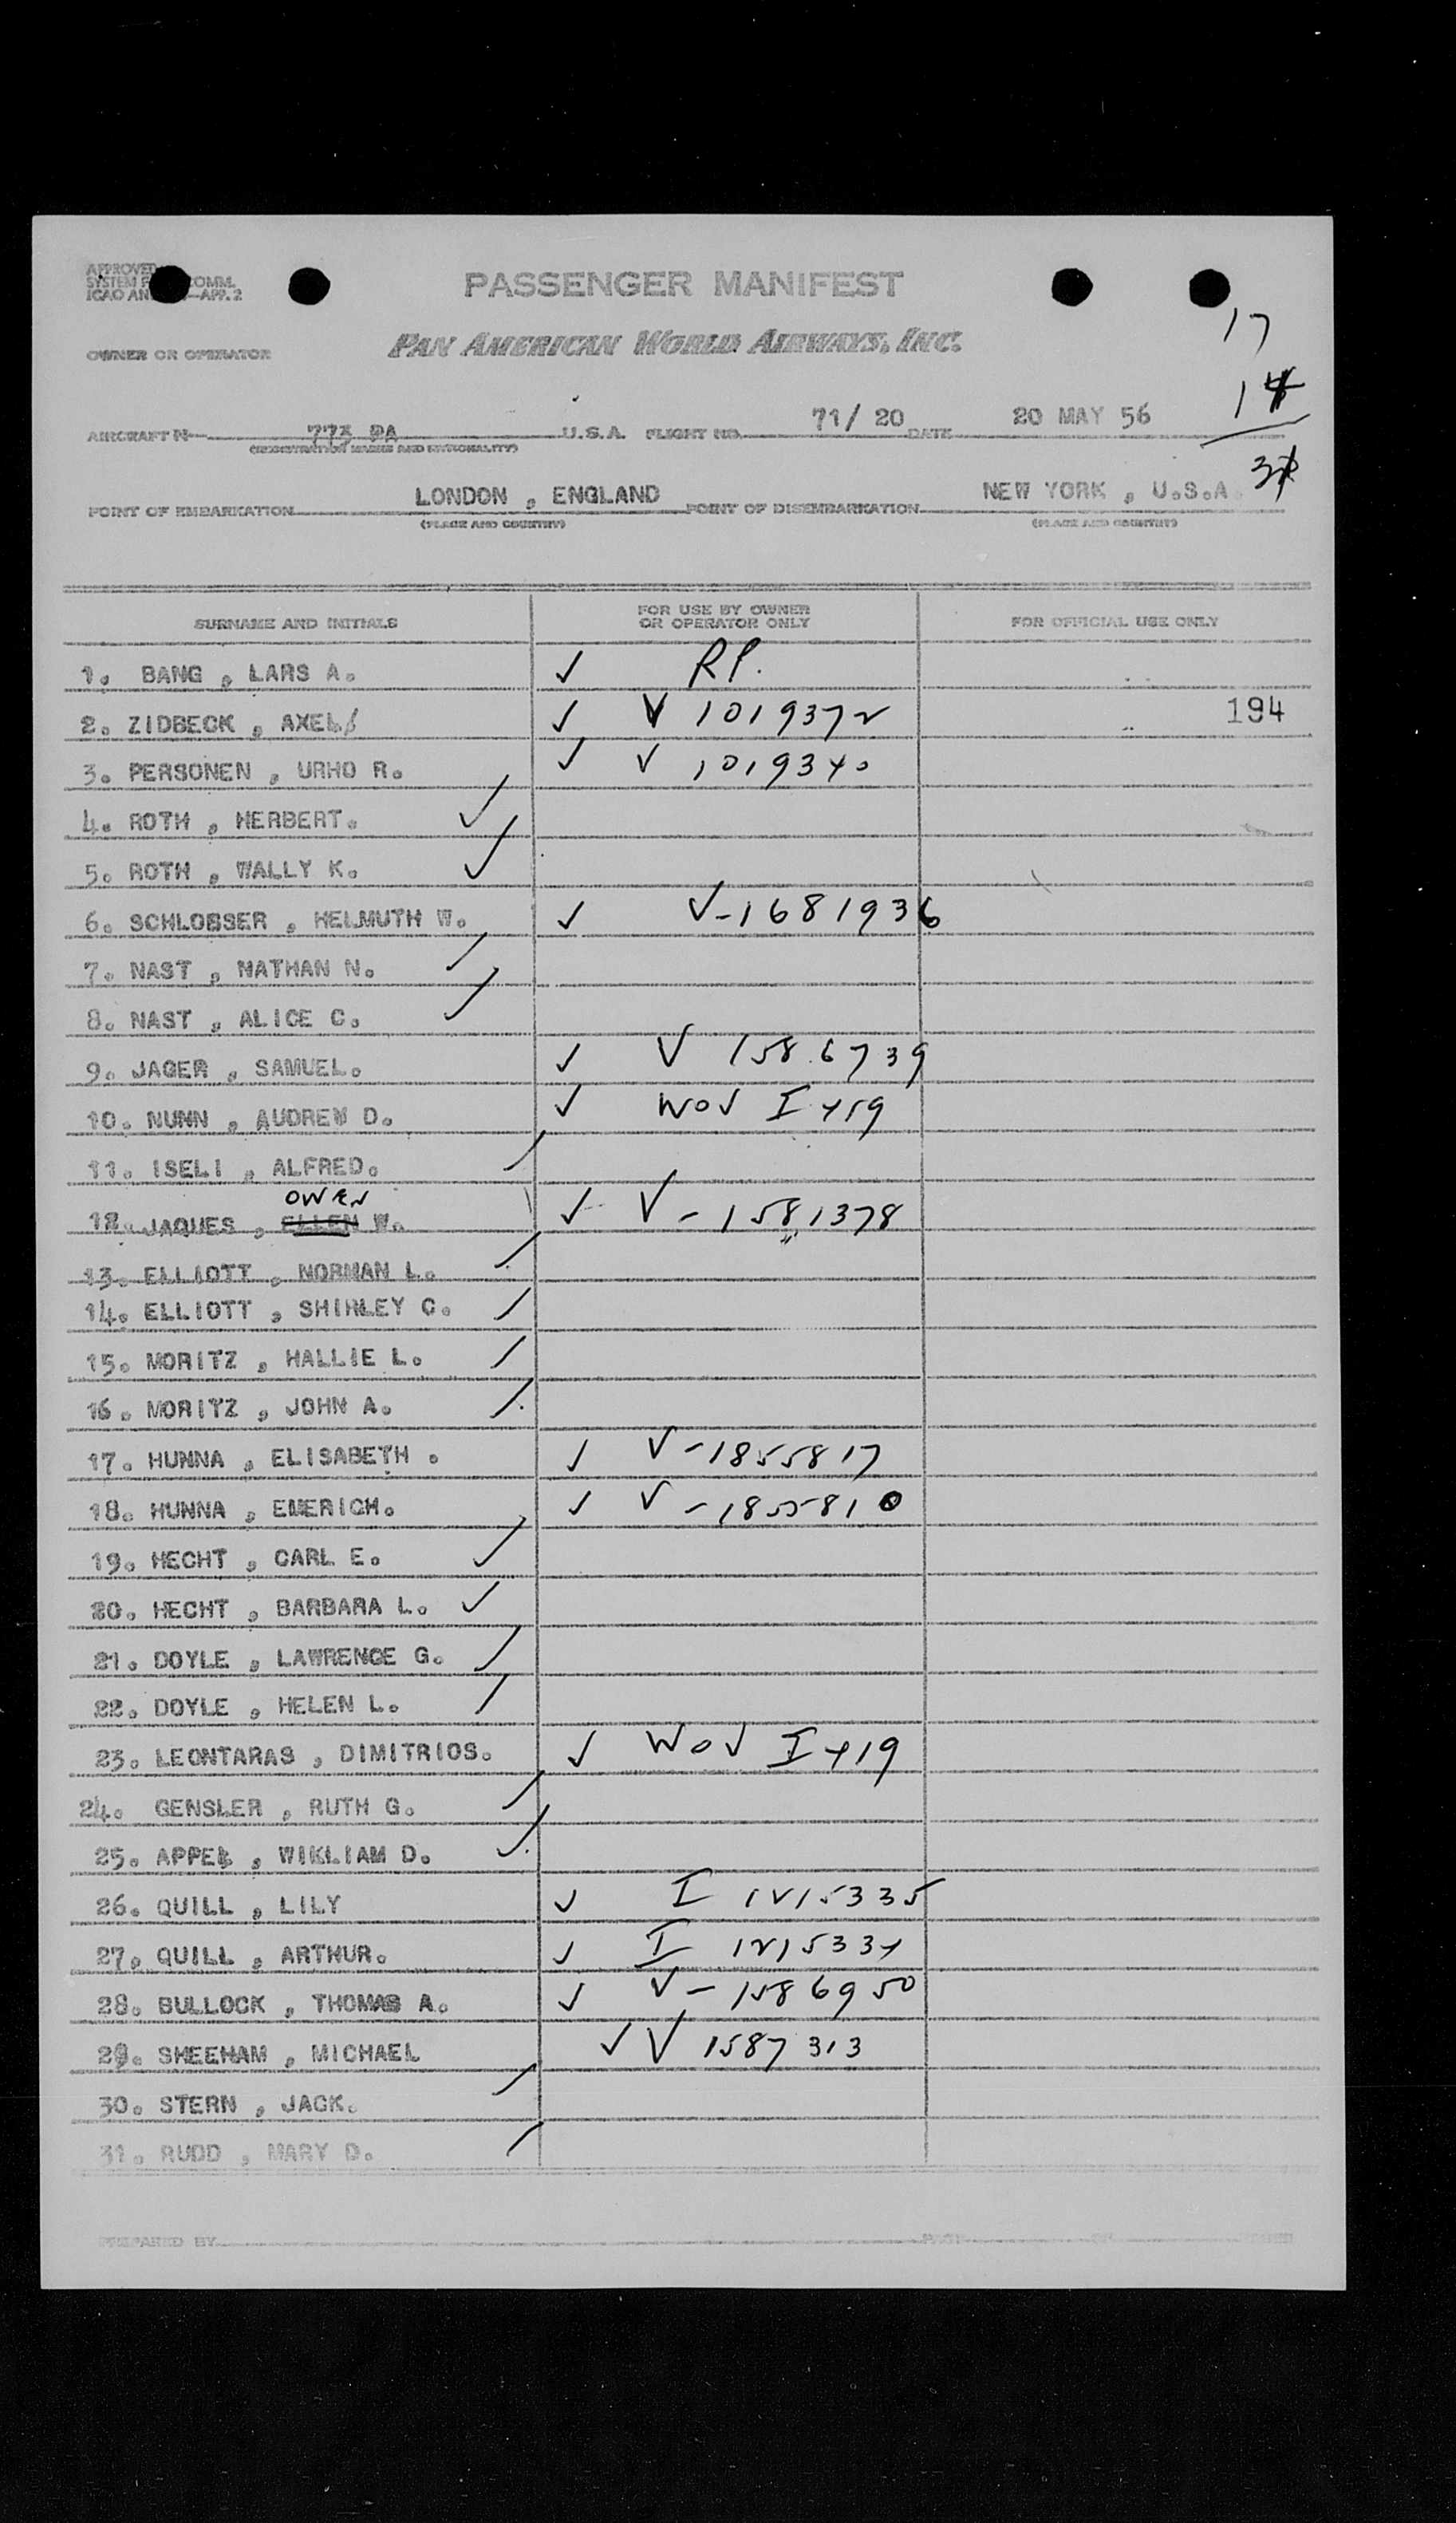 APPROVED
SYSTEM COMM.
ICAO AN —APP. 2
PASSENGER MANIFEST
17
OWNER OR OPERATOR PAN AMERICAN WORLD AIRWAYS, INC.
AIRCRAFT N 773 PA U.S.A. FLIGHT NO. 71/ 20 DATE 20 MAY 56
(REGISTRATION MARKS AND NATIONALITY)
POINT OF EMBARKATION LONDON , ENGLAND POINT OF DISEMBARKATION NEW YORK , U.S.A.
(PLACE AND COUNTRY) (PLACE AND COUNTRY)
SURNAME AND INITIALS FOR USE BY OWNER OR OPERATOR ONLY FOR OFFICIAL USE ONLY
1. BANG , LARS A. ✓ RP.
2. ZIDBECK , AXEL ✓ V 1019372 194
3. PERSONEN , URHO R. ✓ V 1019340
4. ROTH , HERBERT. ✓
5. ROTH , WALLY K. ✓
6. SCHLOBSER , HELMUTH W. ✓ V-1681936
7. NAST , NATHAN N. ✓
8. NAST , ALICE C. ✓
9. JAGER , SAMUEL. ✓ V 1586739
10. NUNN , AUDREW D. ✓ WOV I 419
11. ISELI , ALFRED. /
OWEN
12. JAQUES , ELLEN W. ✓ V-1581378
13. ELLIOTT , NORMAN L. /
14. ELLIOTT , SHIRLEY C. /
15. MORITZ , HALLIE L. /
16. MORITZ , JOHN A. /
17. HUNNA , ELISABETH . ✓ V-1855817
18. HUNNA , EMERICH. ✓ V-1855810
19. HECHT , CARL E. ✓
20. HECHT , BARBARA L. ✓
21. DOYLE , LAWRENCE G. /
22. DOYLE , HELEN L. /
23. LEONTARAS , DIMITRIOS. ✓ WOV I 419
24. GENSLER , RUTH G. /
25. APPEL , WIKLIAM D. ✓
26. QUILL , LILY ✓ I 1215335
27. QUILL , ARTHUR. ✓ I 1215334
28. BULLOCK , THOMAS A. ✓ V-1586950
29. SHEEHAM , MICHAEL ✓ V 1587313
30. STERN , JACK. /
31. RUDD , MARY D. /
PREPARED BY PAGE OF